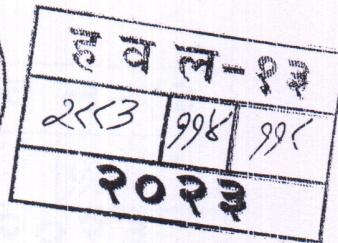 हवल-१३
२८८३ ११४ ११८
२०२३